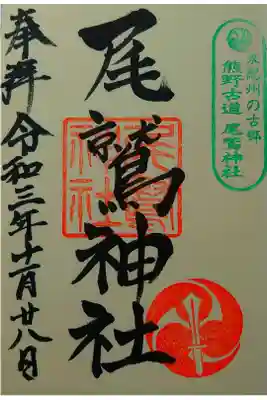 紀州の古郷
熊野古道 尾鷲神社
尾鷲神社
奉拝 令和三年十一月廿八日